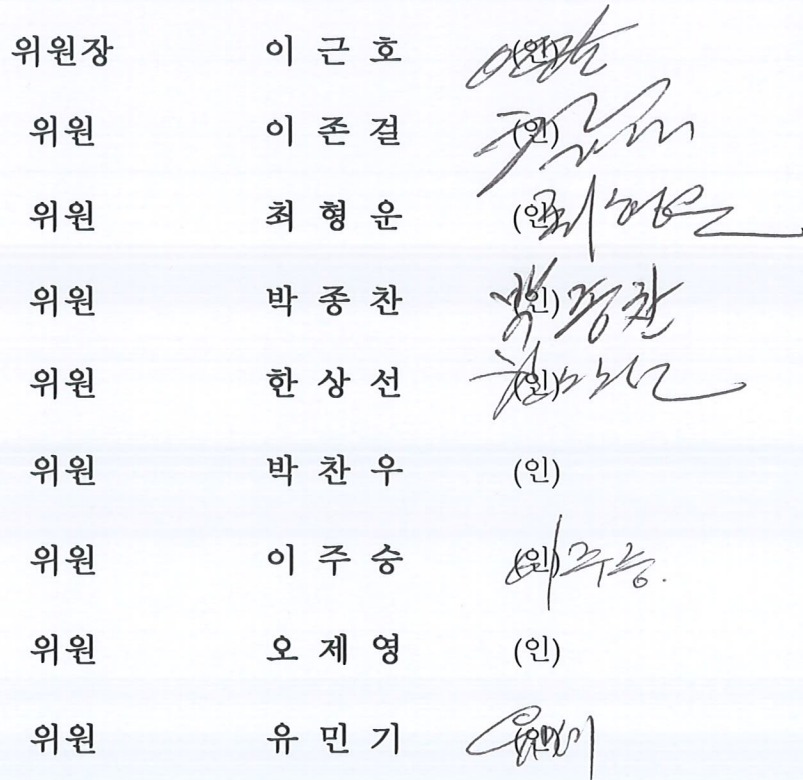 위원장 이 근 호 (인)
위원 이 존 걸 (인)
위원 최 형 운 (인) 최형운
위원 박 종 찬 (인) 박종찬
위원 한 상 선 (인)
위원 박 찬 우 (인)
위원 이 주 승 (인) 이주승
위원 오 제 영 (인)
위원 유 민 기 (인) 유민기